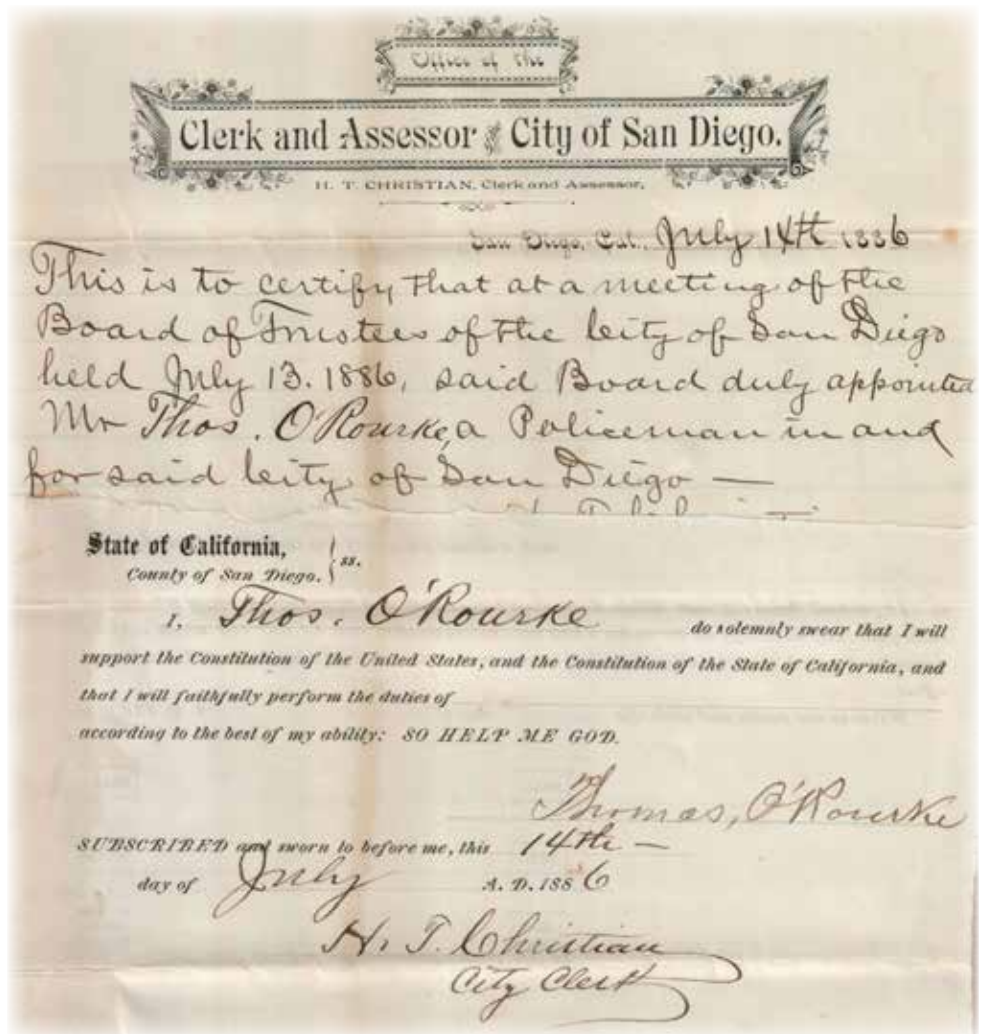 Office of the
Clerk and Assessor of the City of San Diego.
H. T. CHRISTIAN, Clerk and Assessor,
San Diego, Cal., July 14th 1886
This is to certify that at a meeting of the
Board of Trustees of the City of San Diego
held July 13. 1886, said Board duly appointed
Mr Thos. O'Rourke, a Policeman in and
for said City of San Diego —
State of California,
County of San Diego. } ss.
I, Thos. O'Rourke do solemnly swear that I will
support the Constitution of the United States, and the Constitution of the State of California, and
that I will faithfully perform the duties of
according to the best of my ability: SO HELP ME GOD.
Thomas, O'Rourke
SUBSCRIBED and sworn to before me, this 14th —
day of July A. D. 1886
H. T. Christian
City Clerk